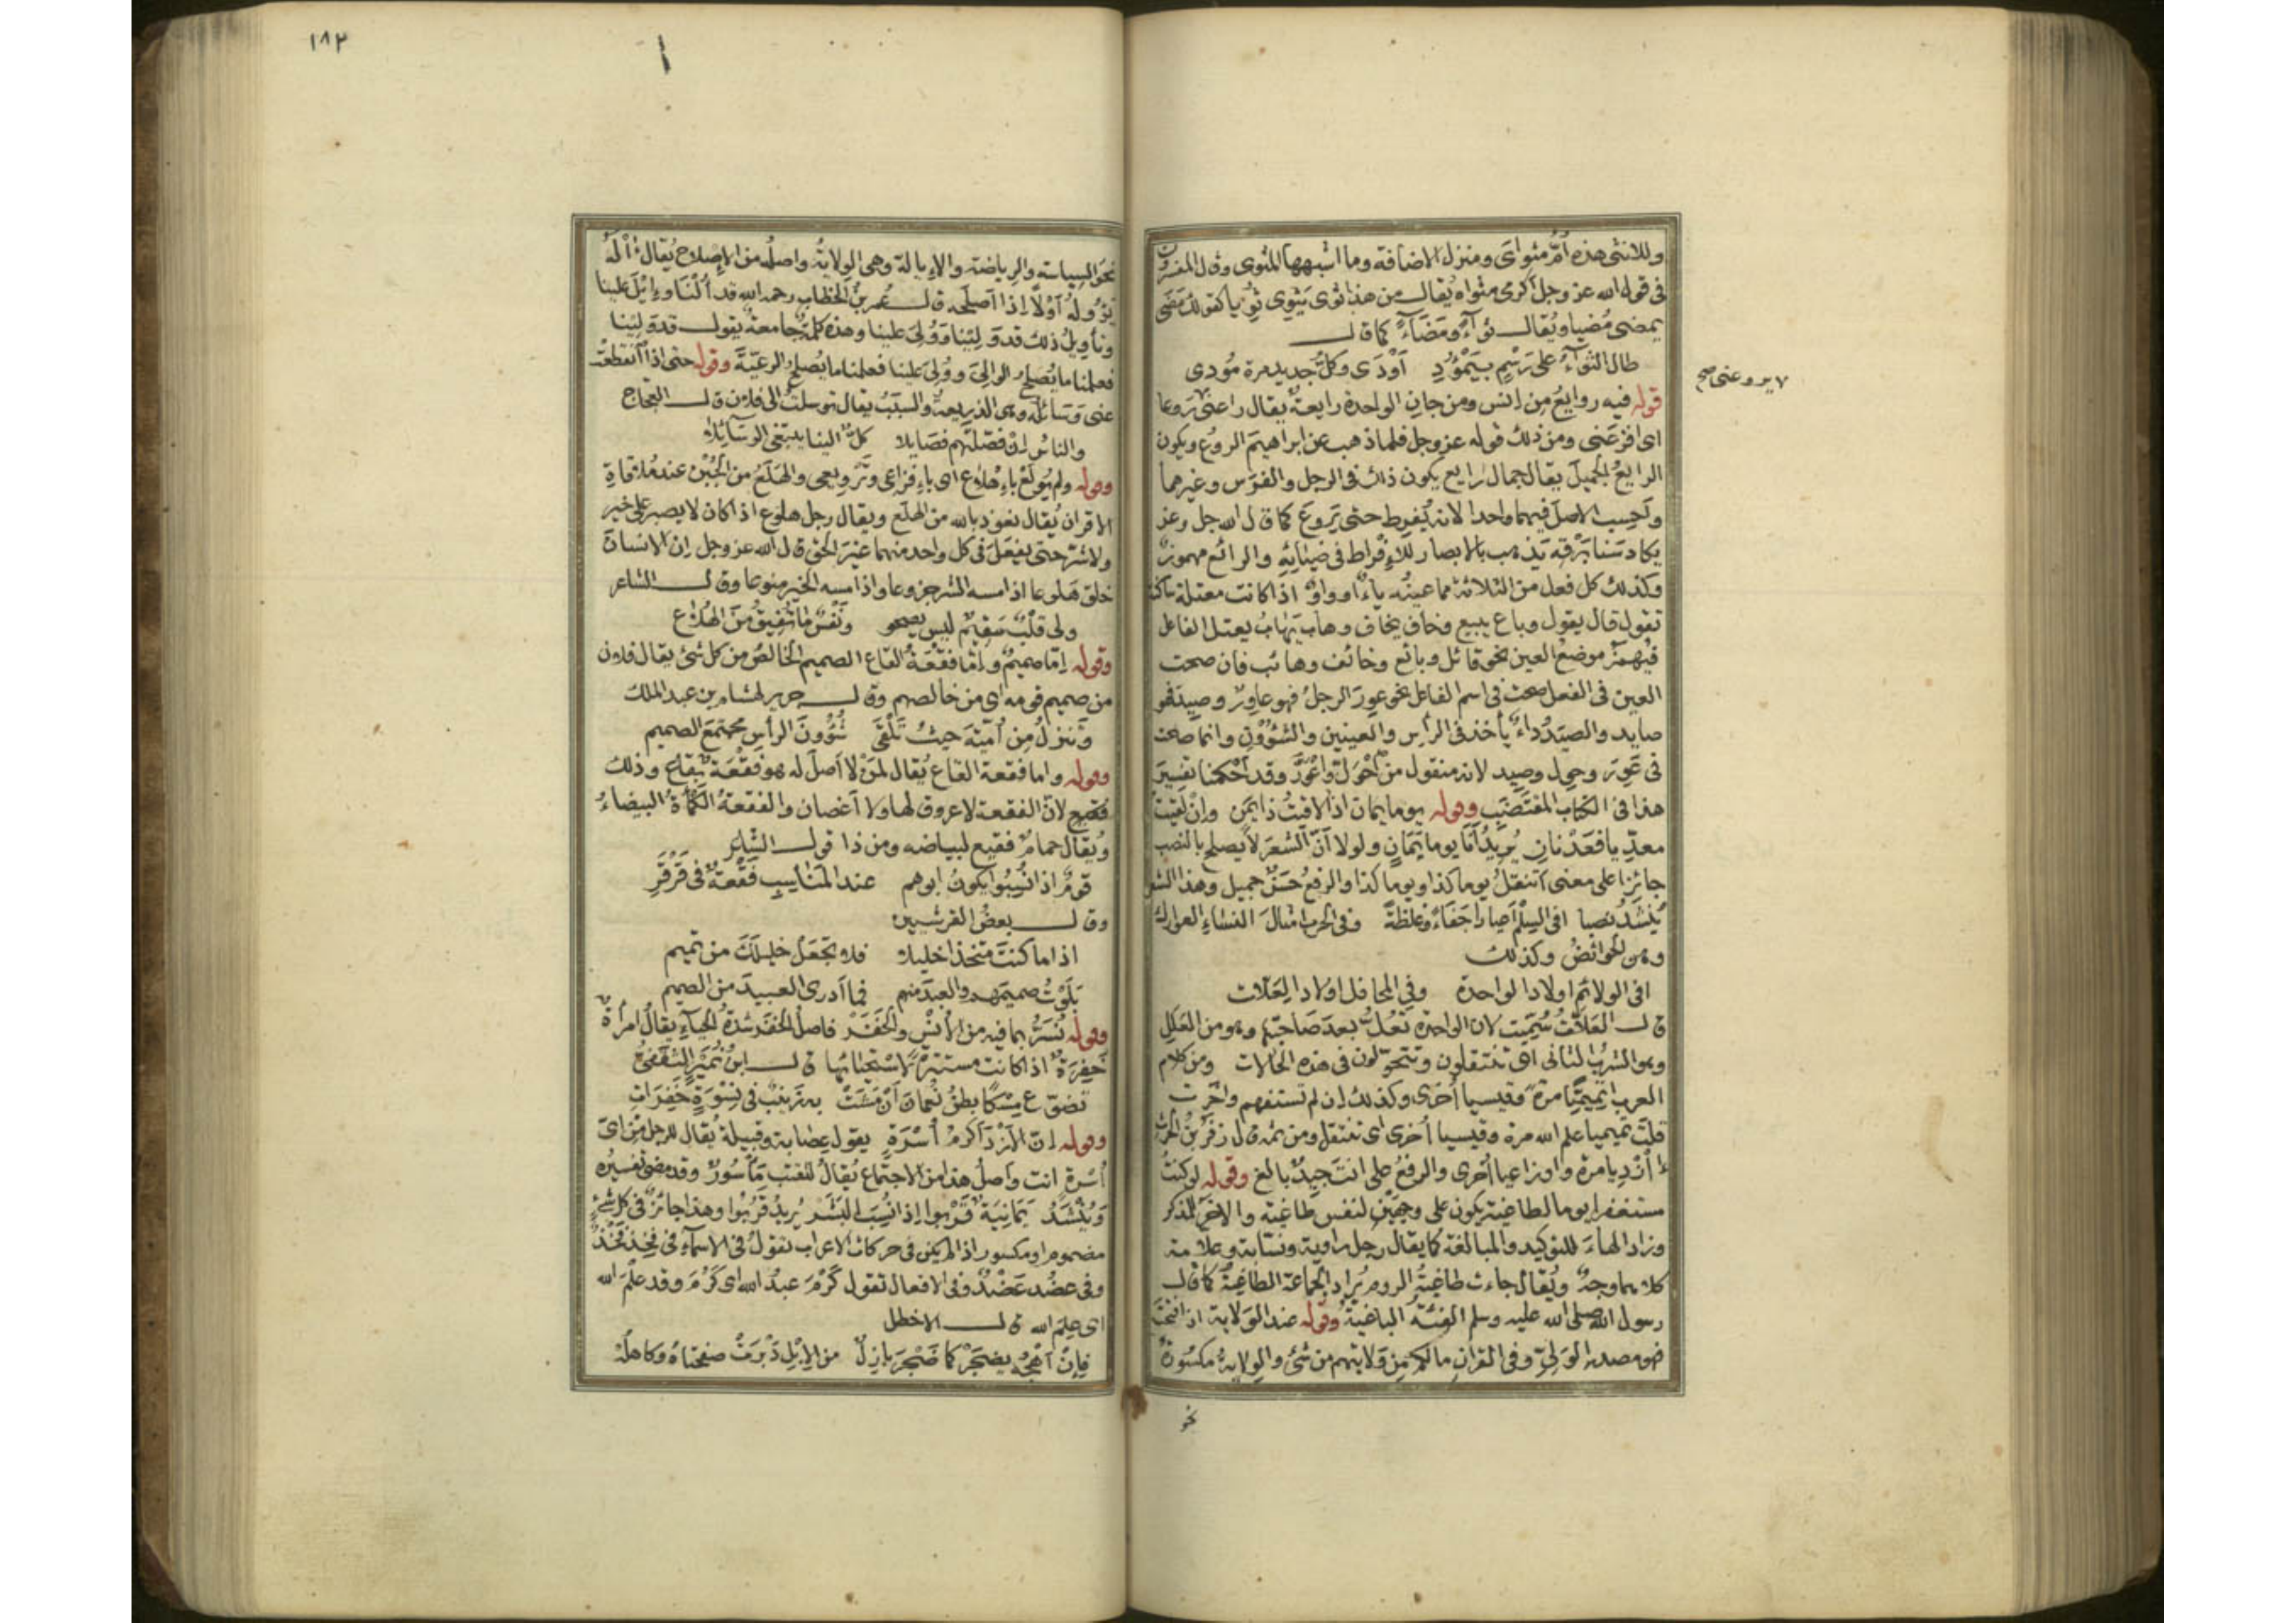 وللانثى هذه أُمّ مثواىَ ومنزل الاضافة وما اشبهها المثوى وقال المفسرون
فى قول الله عز وجل اكرمى مثواه يُقال من هذا ثوى يَثوِى ثُوِيا كقولك مَضَى
يمضى مُضِيا ويُقال ثوآءً ومَضَآءً كما قال
طال الثوآءُ على رَسْمٍ بيَمْؤُودِ أَوْدَى وكلُّ جديد مرة مُودى
قوله فيه روايعُ من إنس ومن جانِ الواحدة رايعةٌ يقال راعنى رَوعا
٧ يروعنى صح
اى افزعَنى ومن ذلك قوله عز وجل فلما ذهب عن ابراهيمَ الروعُ ويكون
الرايعُ الجميلَ يقال جمال رايع يكون ذلك فى الرجل والفرَس وغيرهما
واحسب الاصل فيهما واحدا لانه يُفرِط حتى يَروعَ كما قال الله جل وعز
يكاد سَنا بَرْقه يَذهب بالابصار للإفراط فى ضيائِهِ والرائع مهموزٌ
وكذلك كل فعل من الثلاثة مما عينُه ياءٌ او واوٌ اذا كانت معتلة ساكنة
تقول قال يقول وباع يبيع وخاف يخاف وهابَ يَهابُ يعتل الفاعل
فيُهمَزُ موضعُ العين نحو قائل وبائع وخائف وهائب فان صحت
العين فى الفعل صحت فى اسم الفاعل نحو عوِرَ الرجلُ فهو عاوِرٌ وصيِد فهو
صايد والصيَدُ داءٌ يأخذ فى الرأس والعينين والشؤُونِ وانما صحت
فى عَوِرَ وحول وصيِد لانه منقول من احْوَلَّ واعْوَرَّ وقد أحْكمنا تفسيرَ
هذا فى الكتاب المقتضَب وقوله يوما يمان اذا لاقيتُ ذا يَمَن وإنْ لَقِيتُ
معدِّيا فعَدْنانِ يُريدُ أنَا يوما يَمَانٍ ولولا أنّ الشعرَ لا يصلح بالنصب
جائزا على معنى أتنقلُ يوما كذا ويوما كذا والرفعُ حَسَنٌ جميل وهذا الشعر
يُنشَدُ نصبا افى السِلْمِ أعيارا جَفَاءً وغلظةً وفى الحرب امثالَ النساءِ العوارك
وهن الحوائضُ وكذلك
افى الولائم اولادا لواحدة وفى المحافل اولادا لعَلّات
قال العَلّاتُ سُمِّيت لان الواحدة تُعلُّ بعدَ صَاحبتها وهو من العَلَلِ
وهو الشربُ الثانى اى تتنقلون وتتحولون فى هذه الحالات ومن كلام
العرب أتميمِيًّا مرةً وقيسيا أخرى وكذلك ان لم تستفهم واخبرت
قلتَ تميميا علم الله مرة وقيسيا أُخرى اى تتنقل ومن ثَمّه قال زفَرُ بْنُ الحرث
أَزْدِيا مرة واوزاعيا أُخرى والرفعُ على انتَ جيدٌ بالغ وقوله لو كنتُ
مستغفرا يوما لطاغيةٍ يكون على وجهَيْن لنفس طَاغِيَة والآخر للمذكر
وزاد الهاءَ للتوكيد والمبالغة كما يقال رجل راوية ونسّابة وعلامة
كلاهما وجهٌ ويُقال جاءت طاغيةُ الروم يُراد الجماعة الطاغيةُ كما قال
رسول الله صلى الله عليه وسلم الفئة الباغيةُ وقوله عند الوَلاية اذا فتحتَ
فهو مصدر الوَلىِّ وفى القرآن مالكم مِن وَلايتهم من شئ والوِلايةُ مكسُورةٌ
نحو
١٨٢
نحوَ السِياسةِ والرِياضةِ والإيالة وهى الوِلايةُ واصلُه من الإصلاح يُقال أالَهُ
يَؤُولُه أَوْلًا اذا اصلحه قال عُمر بنُ الخطاب رحمه الله قد أُلْنا وإيلَ علينا
وتأويلُ ذلك قد وَلِيْنا ووُلِىَ علينا وهذه كلمةٌ جامعةٌ يقول قد ولِيْنا
فعلمنا ما يُصلح الوالِىَ ووُلِىَ علينا فعلمنا ما يُصلحُ الرعيّةَ وقوله حتى اذا انقطعتْ
عنى وَسَائلُه وهى الذريعةُ والسبَبُ يقال توسلتُ الى فلان قال العجاج
والناسُ إنْ فصّلتَهم فصَايلا كلٌّ الينا يبتغى الوسَائلا
وقوله ولم يُولَعْ باهْلاعِ اى بافزاعى وتَرْويعى والهَلَعُ من الجُبْن عند مُلاقاةِ
الاقران يُقال نعوذ بالله من الهلَع ويقال رجل هلوع اذا كان لا يصبر على خير
ولا شرّ حتى يفعَلَ فى كل واحد منهما غيْرَ الحق قال الله عز وجل إن الانسان
خلق هَلوعا اذا مسه الشر جزوعا واذا مسه الخير منوعا وقال الشاعر
ولى قلبٌ سَقِيمٌ ليس يصحو ونَفْسٌ ما تُفِيقُ مِنَ الهُلاعِ
وقوله إمّا صميمٌ وإمّا فقْعَةُ القاع الصميم الخالصُ من كل شئ يقال فلان
من صميم قومه اى من خالصهم وقال جرير لهشام بن عبد الملك
وتَنزلُ مِن أُميّة حيثُ تَلْقَى شُؤُونَ الرأسِ مُجتمَعَ الصميم
وقوله واما فقعة القاع يُقال لمَنْ لا اصلَ له هو فقْعَةٌ بقاع وذلك
فقيع لانّ الفقعة لا عروق لها ولا اغصان والفقعةُ الكَمْأةُ البيضاءُ
ويُقال حمامٌ فقيع لبياضه ومن ذا قول الشاعر
قومٌ اذا نُسِبُوا يكونُ ابوهم عند المَنَاسِبِ فَقْعةً فى قَرْقَرِ
وقال بعضُ القرشيين
اذا ما كنتَ متخذا خليلا فلا تجعَلْ خليلَكَ من تميم
بَلَوْتُ صميمَهم والعبدَ منهم فما أَدرى العبيدَ من الصميم
وقوله نُسَرُّ بما فيه من الأُنْسِ والخَفَرْ فاصلُ الخفَر شدّةُ الحياءِ يقالُ امرأةٌ
خَفِرَةٌ اذا كانت مستترةً لاستحيائِها قال ابنُ نُمَيْرٍ الثقفىُّ
تضوّع مِسْكًا بطنُ نُعمانَ أنْ مَشَتْ به زَيْنَبٌ فى نِسْوَةٍ خَفِرَاتِ
وقوله إنّ الازْدَ أكرمُ أُسْرَةٍ يقول عِصَابة وقبيلة يُقال للرجل مِنْ اىِّ
أُسْرةٍ انت واصلُ هذا من الاجتماع يُقالُ للقتَب مَأْسُورٌ وقد مضى تفسيرُه
ويُنْشَدُ يَمَانِيَةٌ قَرْبوا إذا نُسِبَ البَشَر يُريدُ قَرُبُوا وهذا جائزٌ فى كل شئٍ
مضموم او مكسور اذا لم يكن فى حركات الاعراب تقولُ فى الاسماء فى فَخِذ فَخْذٌ
وفى عضُد عَضْدٌ وفى الافعال تقول كَرْمَ عبدُ الله اى كَرُمَ وقد علْمَ الله
اى عَلِمَ الله قال الاخطل
فإنْ أَهْجُهُ يضجَرْ كما ضَجْرَ بازِلٌ من الإِبْلِ دَبْرَتْ صفحتاهُ وكاهلُهْ